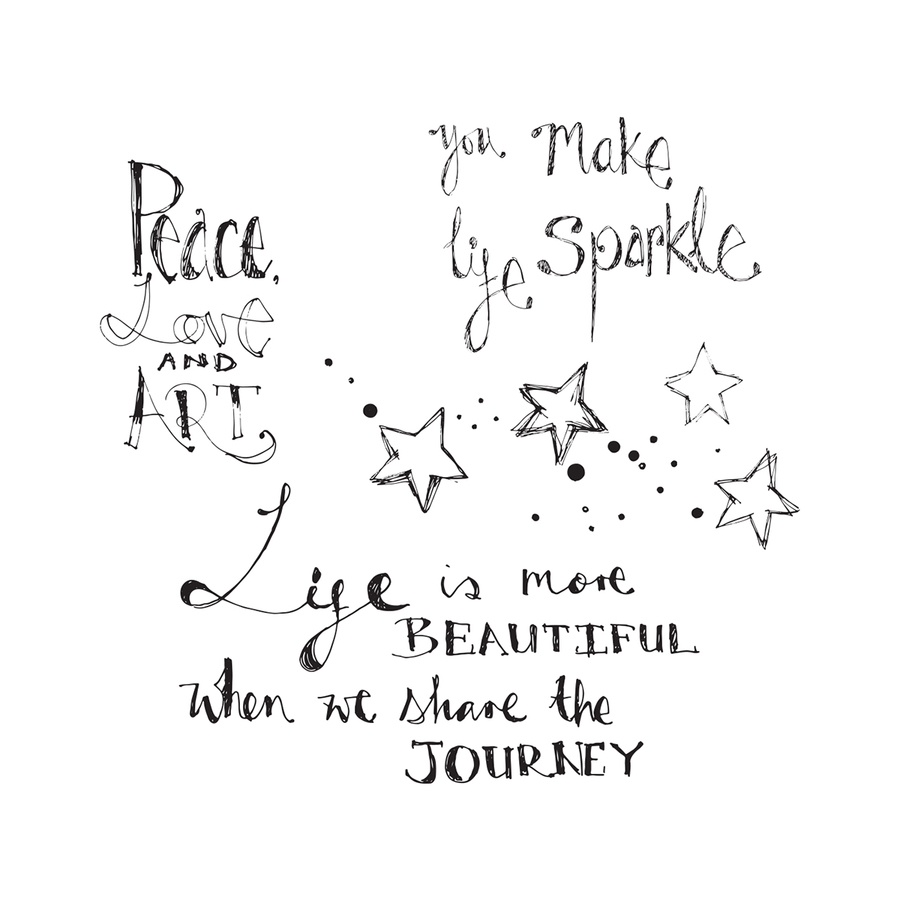 Peace,
Love
AND
ART
you Make
life Sparkle
Life is more
BEAUTIFUL
when we share the
JOURNEY